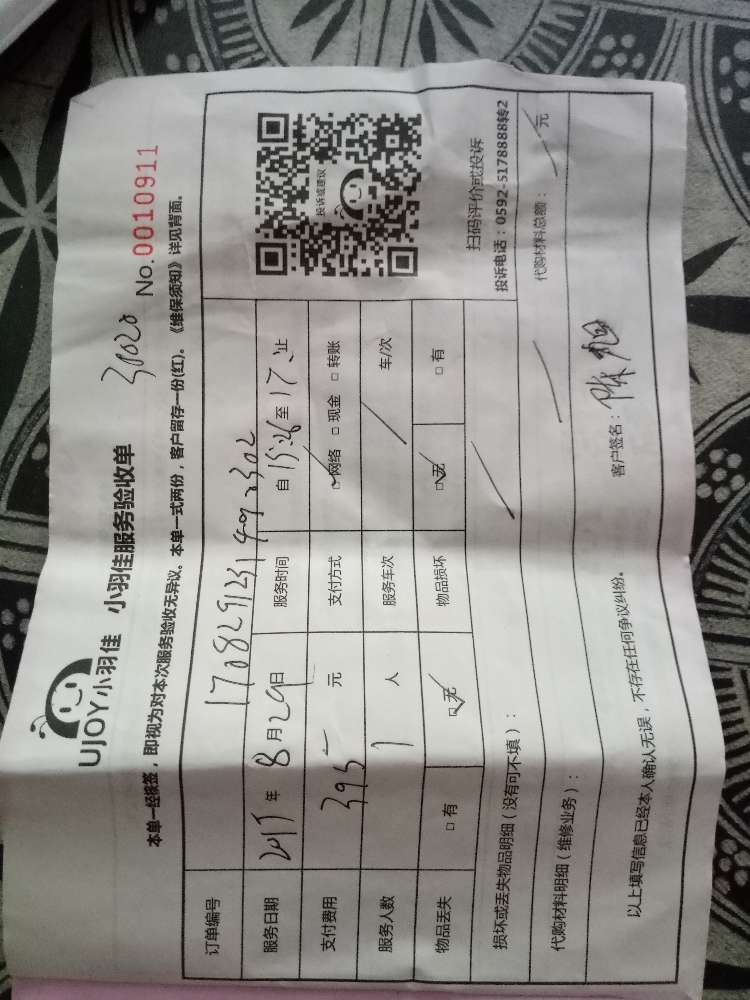 UJOY小羽佳 小羽佳服务验收单
30020
No.0010911
本单一经接签，即视为对本次服务验收无异议。本单一式两份，客户留存一份(红)。《维保须知》详见背面。
订单编号
服务日期 年 8月29日 服务时间 自15:26至17: 止
支付费用 395 元 支付方式 □网络 □现金 □转账
服务人数 1 人 服务车次 / 车/次
物品丢失 □有 □无 物品损坏 □无 □有
投诉或建议
扫码评价或投诉
投诉电话：0592-5178888转2
损坏或丢失物品明细（没有可不填）：
代购材料明细（维修业务）： 代购材料总额： 元
以上填写信息已经本人确认无误，不存在任何争议纠纷。 客户签名：